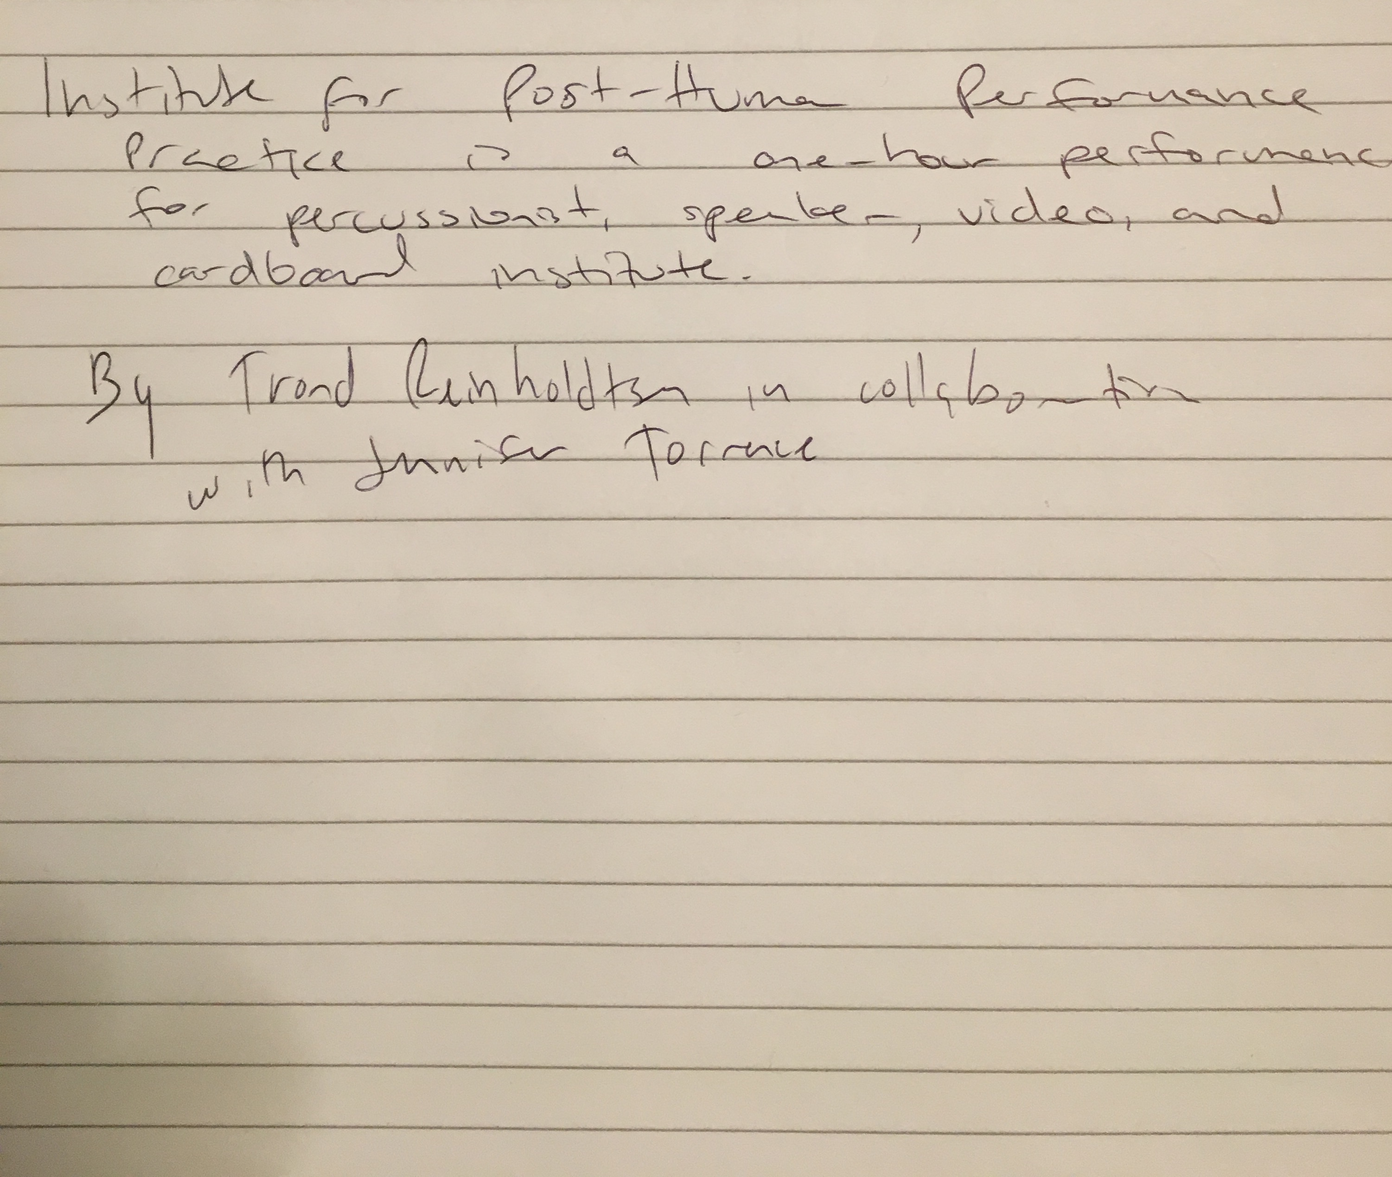 Institute for Post-Human Performance
Practice is a one-hour performance
for percussionist, speaker, video, and
cardboard institute.
By Trond Reinholdtsen in collaboration
with Jennifer Torrence